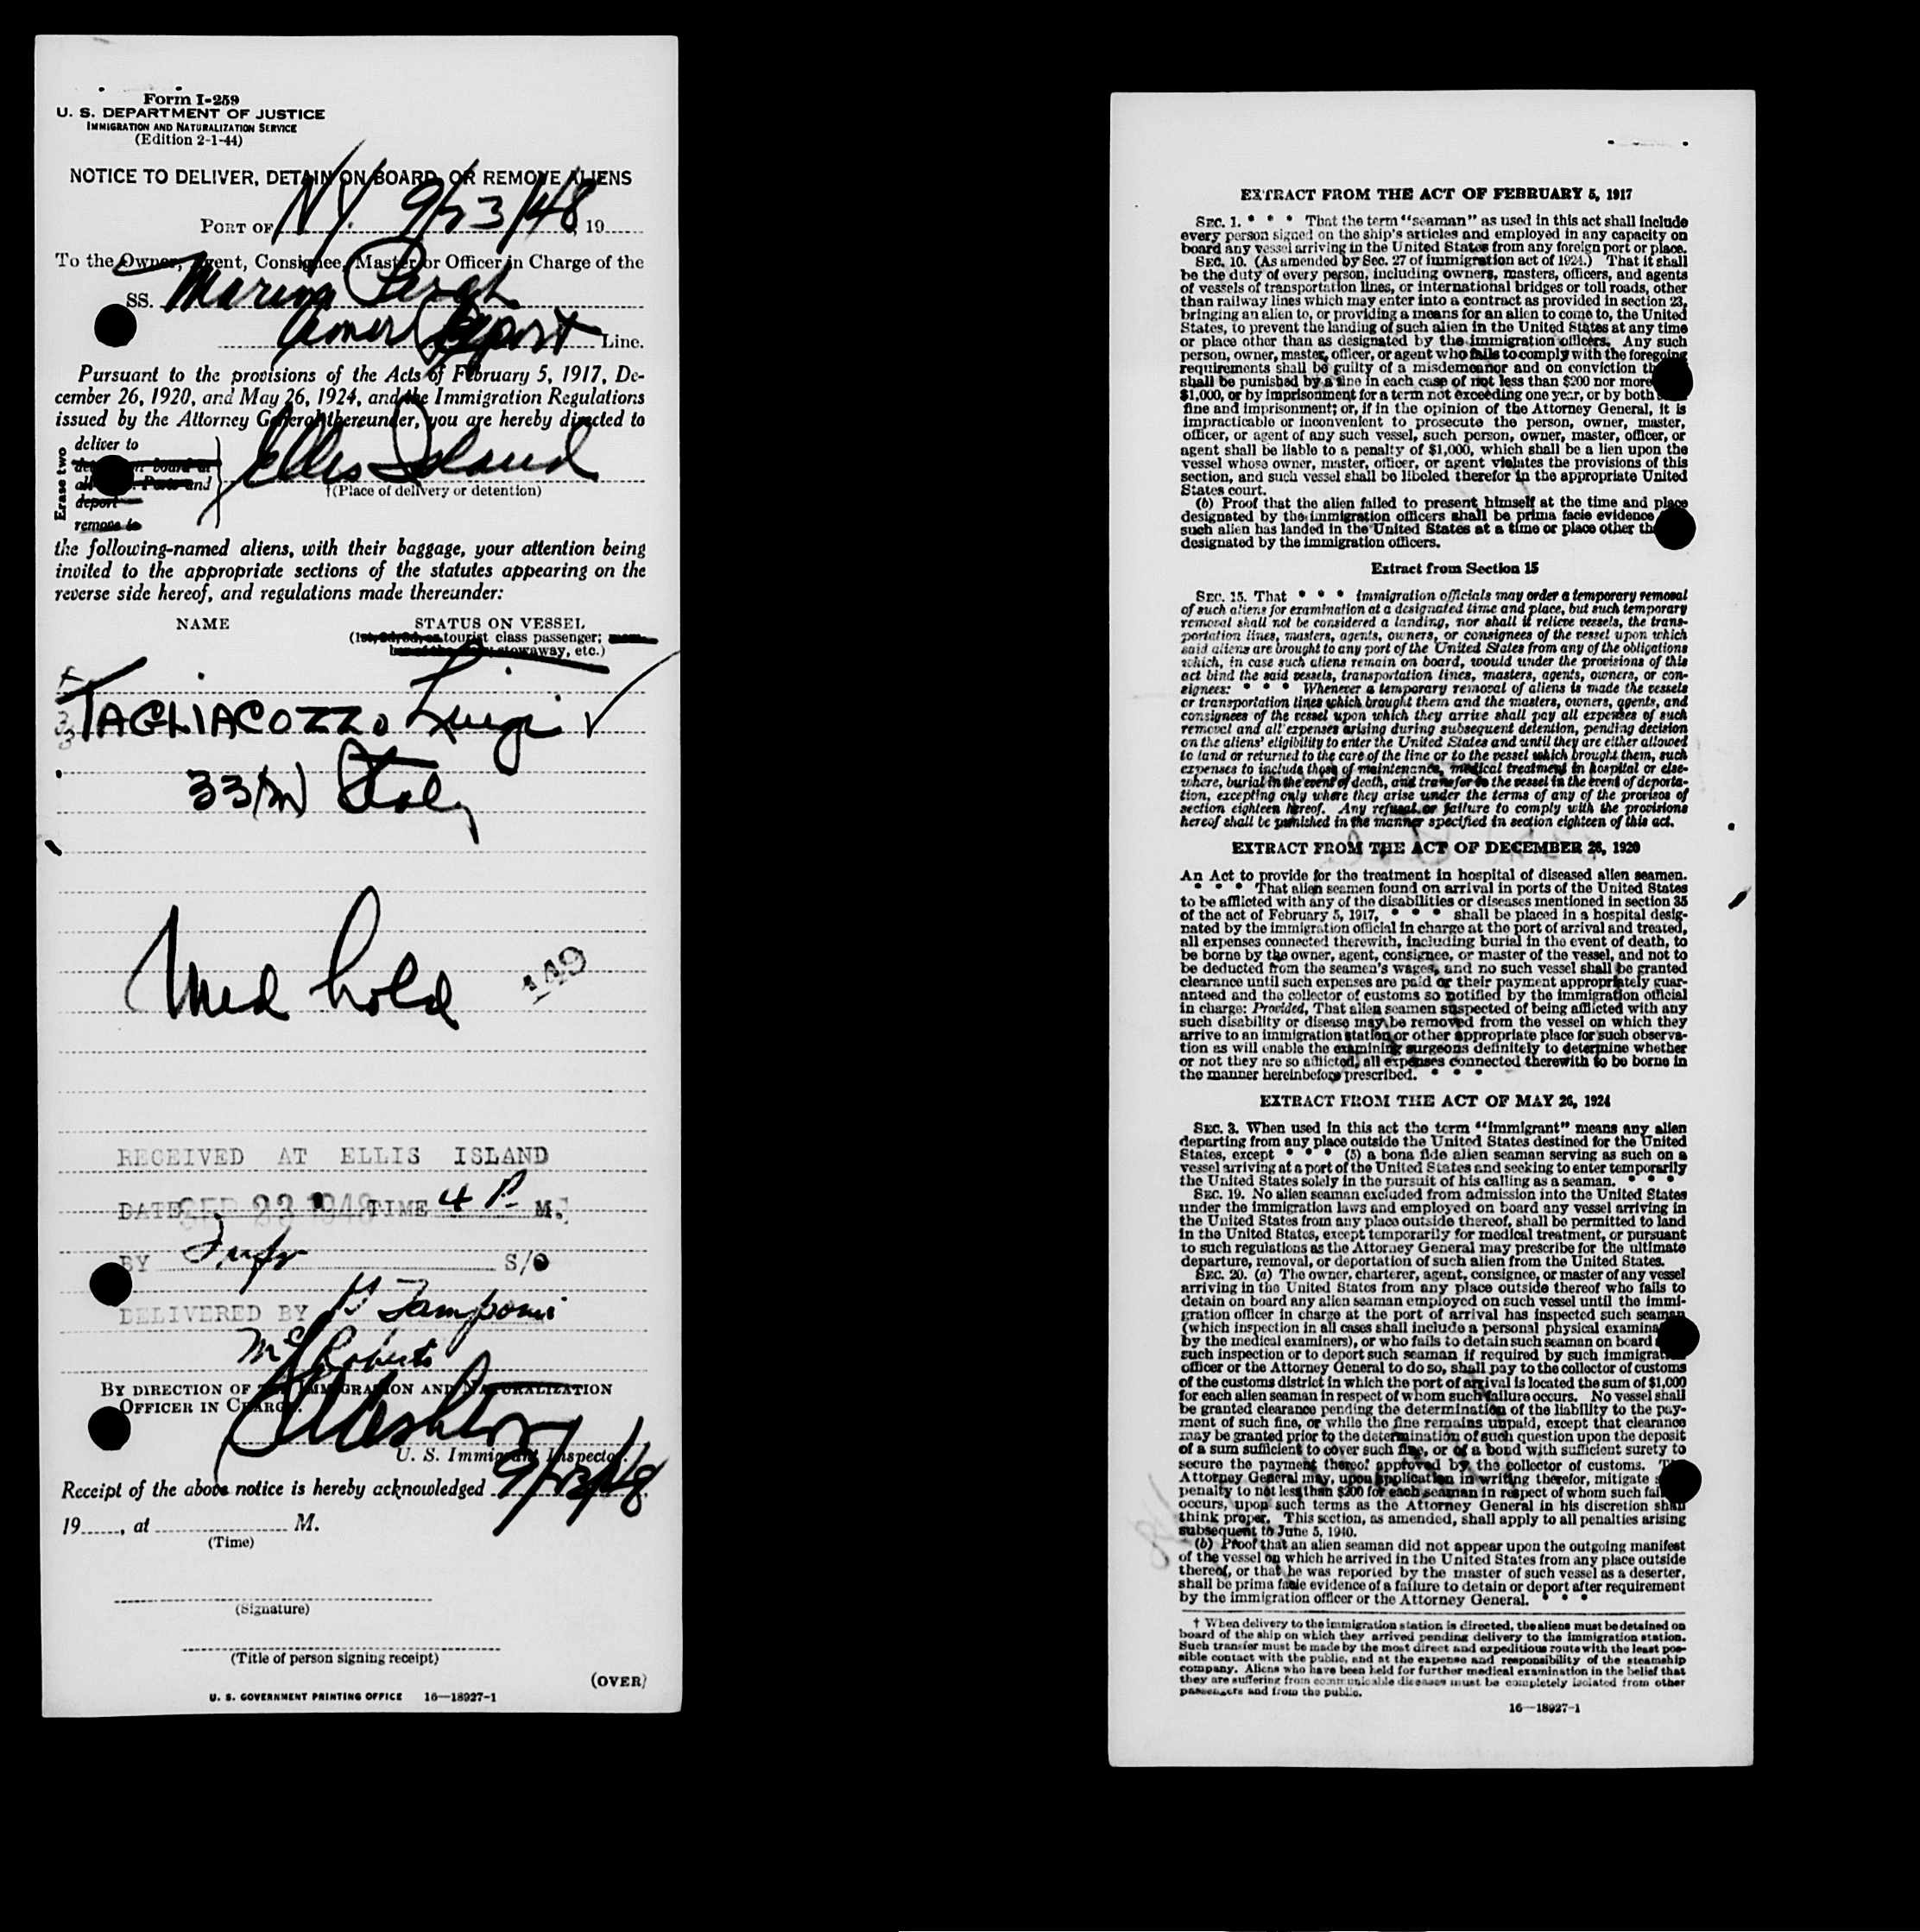 Form I-259
U. S. DEPARTMENT OF JUSTICE
IMMIGRATION AND NATURALIZATION SERVICE
(Edition 2-1-44)
NOTICE TO DELIVER, DETAIN ON BOARD, OR REMOVE ALIENS
PORT OF N.Y. 9/23/48, 19
To the Owner, Agent, Consignee, Master or Officer in Charge of the
SS. Marine Perch
Amer Export Line.
Pursuant to the provisions of the Acts of February 5, 1917, De-
cember 26, 1920, and May 26, 1924, and the Immigration Regulations
issued by the Attorney General thereunder, you are hereby directed to
Erase two
deliver to
board at
and
deport
remove to
Ellis Island
†(Place of delivery or detention)
the following-named aliens, with their baggage, your attention being
invited to the appropriate sections of the statutes appearing on the
reverse side hereof, and regulations made thereunder:
NAME STATUS ON VESSEL
(1st, 2d, 3d, or tourist class passenger; mem-
ber of the stowaway, etc.)
TAGLIACOZZO Luigi ✓
33 M Italy
Med hold
149
RECEIVED AT ELLIS ISLAND
DATE SEP 23 1948 TIME 4 P M.
BY S/O
DELIVERED BY
McRoberts
BY DIRECTION OF THE IMMIGRATION AND NATURALIZATION
OFFICER IN CHARGE.
U. S. Immigrant Inspector.
Receipt of the above notice is hereby acknowledged 9/23/48,
19......, at M.
(Time)
(Signature)
(Title of person signing receipt)
(OVER)
U. S. GOVERNMENT PRINTING OFFICE 16—18927-1
EXTRACT FROM THE ACT OF FEBRUARY 5, 1917
SEC. 1. * * * That the term "seaman" as used in this act shall include
every person signed on the ship's articles and employed in any capacity on
board any vessel arriving in the United States from any foreign port or place.
SEC. 10. (As amended by Sec. 27 of immigration act of 1924.) That it shall
be the duty of every person, including owners, masters, officers, and agents
of vessels of transportation lines, or international bridges or toll roads, other
than railway lines which may enter into a contract as provided in section 23,
bringing an alien to, or providing a means for an alien to come to, the United
States, to prevent the landing of such alien in the United States at any time
or place other than as designated by the immigration officers. Any such
person, owner, master, officer, or agent who fails to comply with the foregoing
requirements shall be guilty of a misdemeanor and on conviction
shall be punished by a fine in each case of not less than $200 nor more
$1,000, or by imprisonment for a term not exceeding one year, or by both
fine and imprisonment; or, if in the opinion of the Attorney General, it is
impracticable or inconvenient to prosecute the person, owner, master,
officer, or agent of any such vessel, such person, owner, master, officer, or
agent shall be liable to a penalty of $1,000, which shall be a lien upon the
vessel whose owner, master, officer, or agent violates the provisions of this
section, and such vessel shall be libeled therefor in the appropriate United
States court.
(b) Proof that the alien failed to present himself at the time and place
designated by the immigration officers shall be prima facie evidence
such alien has landed in the United States at a time or place other
designated by the immigration officers.
Extract from Section 15
SEC. 15. That * * * immigration officials may order a temporary removal
of such aliens for examination at a designated time and place, but such temporary
removal shall not be considered a landing, nor shall it relieve vessels, the trans-
portation lines, masters, agents, owners, or consignees of the vessel upon which
said aliens are brought to any port of the United States from any of the obligations
which, in case such aliens remain on board, would under the provisions of this
act bind the said vessels, transportation lines, masters, agents, owners, or con-
signees: * * * Whenever a temporary removal of aliens is made the vessels
or transportation lines which brought them and the masters, owners, agents, and
consignees of the vessel upon which they arrive shall pay all expenses of such
removal and all expenses arising during subsequent detention, pending decision
on the aliens' eligibility to enter the United States and until they are either allowed
to land or returned to the care of the line or to the vessel which brought them, such
expenses to include those of maintenance, medical treatment in hospital or else-
where, burial in the event of death, and transfer to the vessel in the event of deporta-
tion, excepting only where they arise under the terms of any of the provisos of
section eighteen hereof. Any refusal or failure to comply with the provisions
hereof shall be punished in the manner specified in section eighteen of this act.
EXTRACT FROM THE ACT OF DECEMBER 26, 1920
An Act to provide for the treatment in hospital of diseased alien seamen.
* * * That alien seamen found on arrival in ports of the United States
to be afflicted with any of the disabilities or diseases mentioned in section 35
of the act of February 5, 1917, * * * shall be placed in a hospital desig-
nated by the immigration official in charge at the port of arrival and treated,
all expenses connected therewith, including burial in the event of death, to
be borne by the owner, agent, consignee, or master of the vessel, and not to
be deducted from the seamen's wages, and no such vessel shall be granted
clearance until such expenses are paid or their payment appropriately guar-
anteed and the collector of customs so notified by the immigration official
in charge: Provided, That alien seamen suspected of being afflicted with any
such disability or disease may be removed from the vessel on which they
arrive to an immigration station or other appropriate place for such observa-
tion as will enable the examining surgeons definitely to determine whether
or not they are so afflicted, all expenses connected therewith to be borne in
the manner hereinbefore prescribed. * * *
EXTRACT FROM THE ACT OF MAY 26, 1924
SEC. 3. When used in this act the term "immigrant" means any alien
departing from any place outside the United States destined for the United
States, except * * * (5) a bona fide alien seaman serving as such on a
vessel arriving at a port of the United States and seeking to enter temporarily
the United States solely in the pursuit of his calling as a seaman. * * *
SEC. 19. No alien seaman excluded from admission into the United States
under the immigration laws and employed on board any vessel arriving in
the United States from any place outside thereof, shall be permitted to land
in the United States, except temporarily for medical treatment, or pursuant
to such regulations as the Attorney General may prescribe for the ultimate
departure, removal, or deportation of such alien from the United States.
SEC. 20. (a) The owner, charterer, agent, consignee, or master of any vessel
arriving in the United States from any place outside thereof who fails to
detain on board any alien seaman employed on such vessel until the immi-
gration officer in charge at the port of arrival has inspected such seaman
(which inspection in all cases shall include a personal physical examina
by the medical examiners), or who fails to detain such seaman on board
such inspection or to deport such seaman if required by such immigrat
officer or the Attorney General to do so, shall pay to the collector of customs
of the customs district in which the port of arrival is located the sum of $1,000
for each alien seaman in respect of whom such failure occurs. No vessel shall
be granted clearance pending the determination of the liability to the pay-
ment of such fine, or while the fine remains unpaid, except that clearance
may be granted prior to the determination of such question upon the deposit
of a sum sufficient to cover such fine, or of a bond with sufficient surety to
secure the payment thereof approved by the collector of customs.
Attorney General may, upon application in writing therefor, mitigate
penalty to not less than $200 for each seaman in respect of whom such fai
occurs, upon such terms as the Attorney General in his discretion shall
think proper. This section, as amended, shall apply to all penalties arising
subsequent to June 5, 1940.
(b) Proof that an alien seaman did not appear upon the outgoing manifest
of the vessel on which he arrived in the United States from any place outside
thereof, or that he was reported by the master of such vessel as a deserter,
shall be prima facie evidence of a failure to detain or deport after requirement
by the immigration officer or the Attorney General. * * *
† When delivery to the immigration station is directed, the aliens must be detained on
board of the ship on which they arrived pending delivery to the immigration station.
Such transfer must be made by the most direct and expeditious route with the least pos-
sible contact with the public, and at the expense and responsibility of the steamship
company. Aliens who have been held for further medical examination in the belief that
they are suffering from communicable diseases must be completely isolated from other
passengers and from the public.
16—18927-1